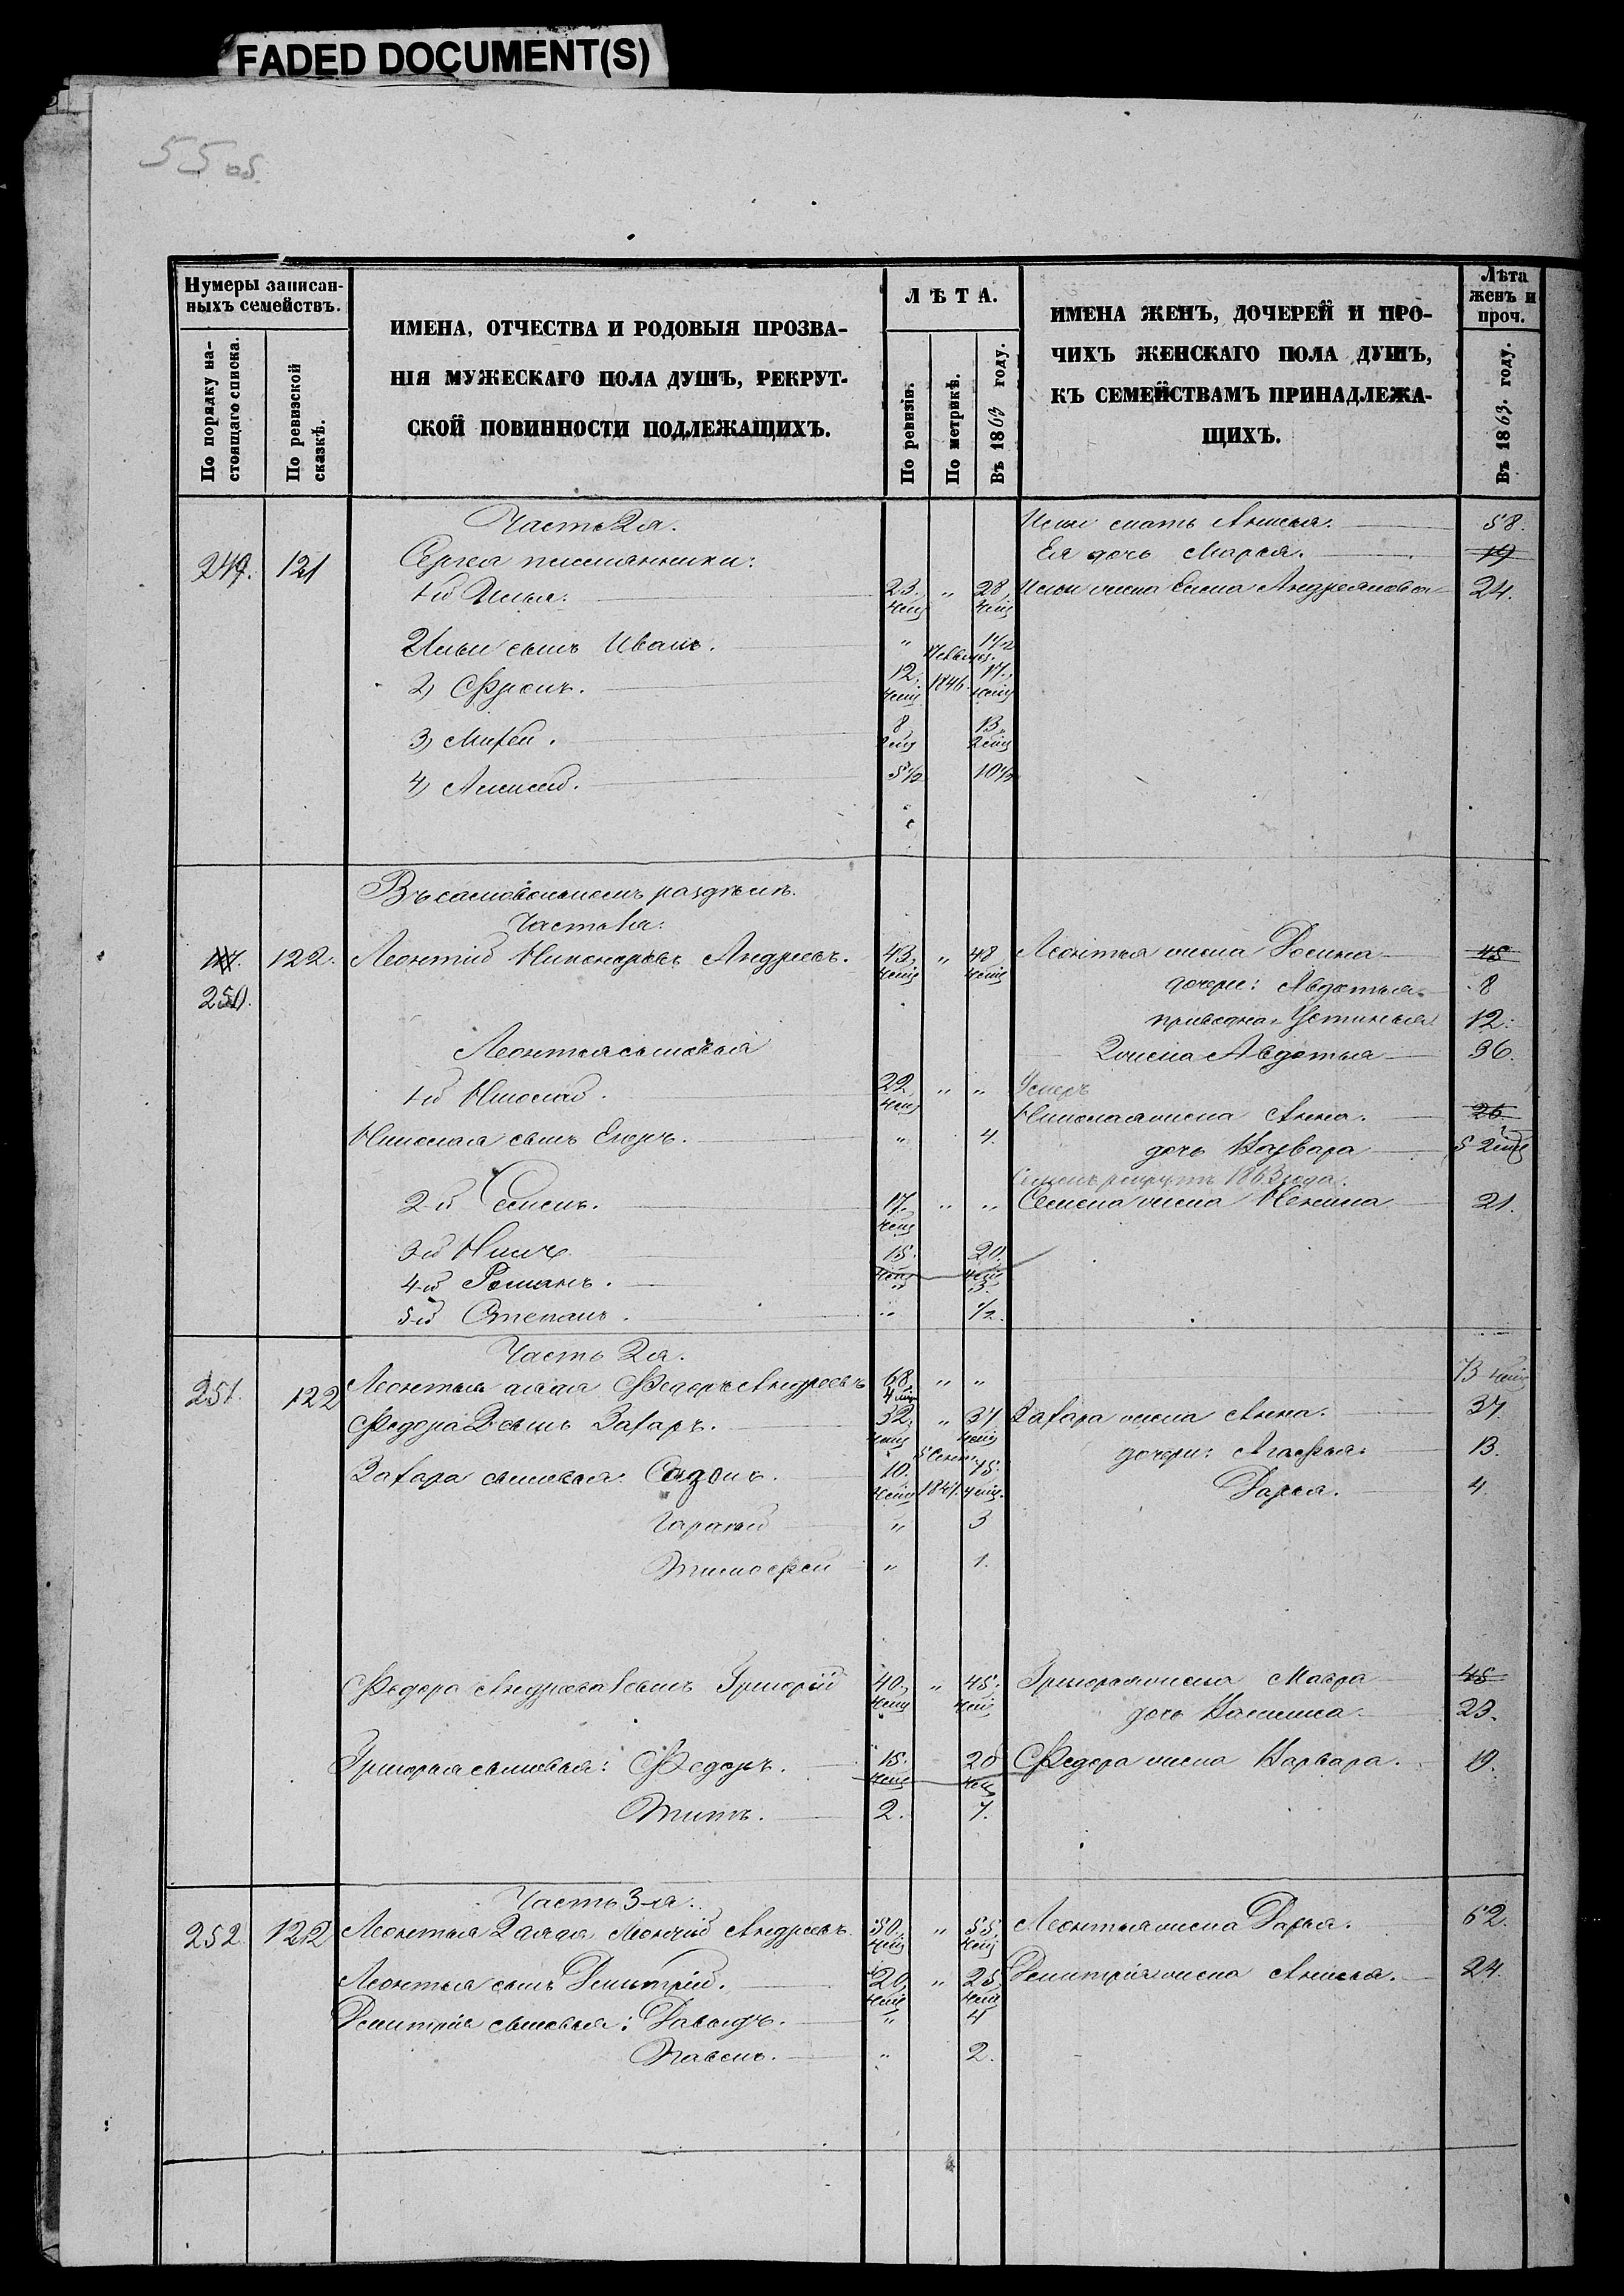 FADED DOCUMENT(S)
55 об.
Нумеры записан-
ныхъ семействъ.
По порядку на-
стоящаго списка.
По ревизской
сказкѣ.
ИМЕНА, ОТЧЕСТВА И РОДОВЫЯ ПРОЗВА-
НІЯ МУЖЕСКАГО ПОЛА ДУШЪ, РЕКРУТ-
СКОЙ ПОВИННОСТИ ПОДЛЕЖАЩИХЪ.
ЛѢТА.
По ревизіи.
По метрикѣ.
Въ 1863 году.
ИМЕНА ЖЕНЪ, ДОЧЕРЕЙ И ПРО-
ЧИХЪ ЖЕНСКАГО ПОЛА ДУШЪ,
КЪ СЕМЕЙСТВАМЪ ПРИНАДЛЕЖА-
ЩИХЪ.
Лѣта
женъ и
проч.
Въ 1863. году.
Часть 2я. Ильи мать Анисья. 58.
249. 121 Сергея племянники: Ея дочь Марья. 19
1й Илья. 23. " 28 Ильи жена Елена Андреянова 24.
Ильи сынъ Иванъ. " 1 1/2
2) Фролъ. 12. 1846. 17.
3) Михей. 8 13
4) Алексей. 5 1/2 10 1/2
Въ самовольномъ разделе.
Часть 1я:
122. Леонтий Никоноровъ Андреевъ. 43, " 48 Леонтья жена 45
250. дочери: Авдотья. 8
приводная Устинья 12.
Леонтья сыновья 2 жена Авдотья 36.
1й Николай. 22 " " Умеръ
Николая жена Анна. 26
Николая сынъ Егоръ. " 4. дочь Варвара 5
Семенъ рекрутъ 1863 года.
2-й Семенъ. 17. " " Семена жена 21.
3-й 15. 20.
4-й Романъ. " 3.
5-й Степанъ. " 1/2.
Часть 2я.
251. 122 Леонтья дядя Федоръ Андреевъ 68 " "
Федора 2 сынъ Захаръ. 32. " 37 Захара жена Анна. 37.
дочери: Агафья. 13.
Захара сыновья: 10. 1847. 15. Дарья. 4.
" 3
Тимофей " 1.
Федора Андреева 1 сынъ Григорий 40, " 45. Григорья жена Мавра 45
дочь 23.
Григорья сыновья: Федоръ. 15. 20 Федора жена Варвара. 19.
Титъ. 2. 7.
Часть 3-я.
252. 122 Леонтья 2 дядя Леонтий Андреевъ. 50. " 55. Леонтья жена Дарья. 62.
Леонтья сынъ Дмитрий. 20. " 25. Дмитрия жена Анисья. 24.
Дмитрия сыновья: Давыдъ. " 4
Павелъ. " 2.